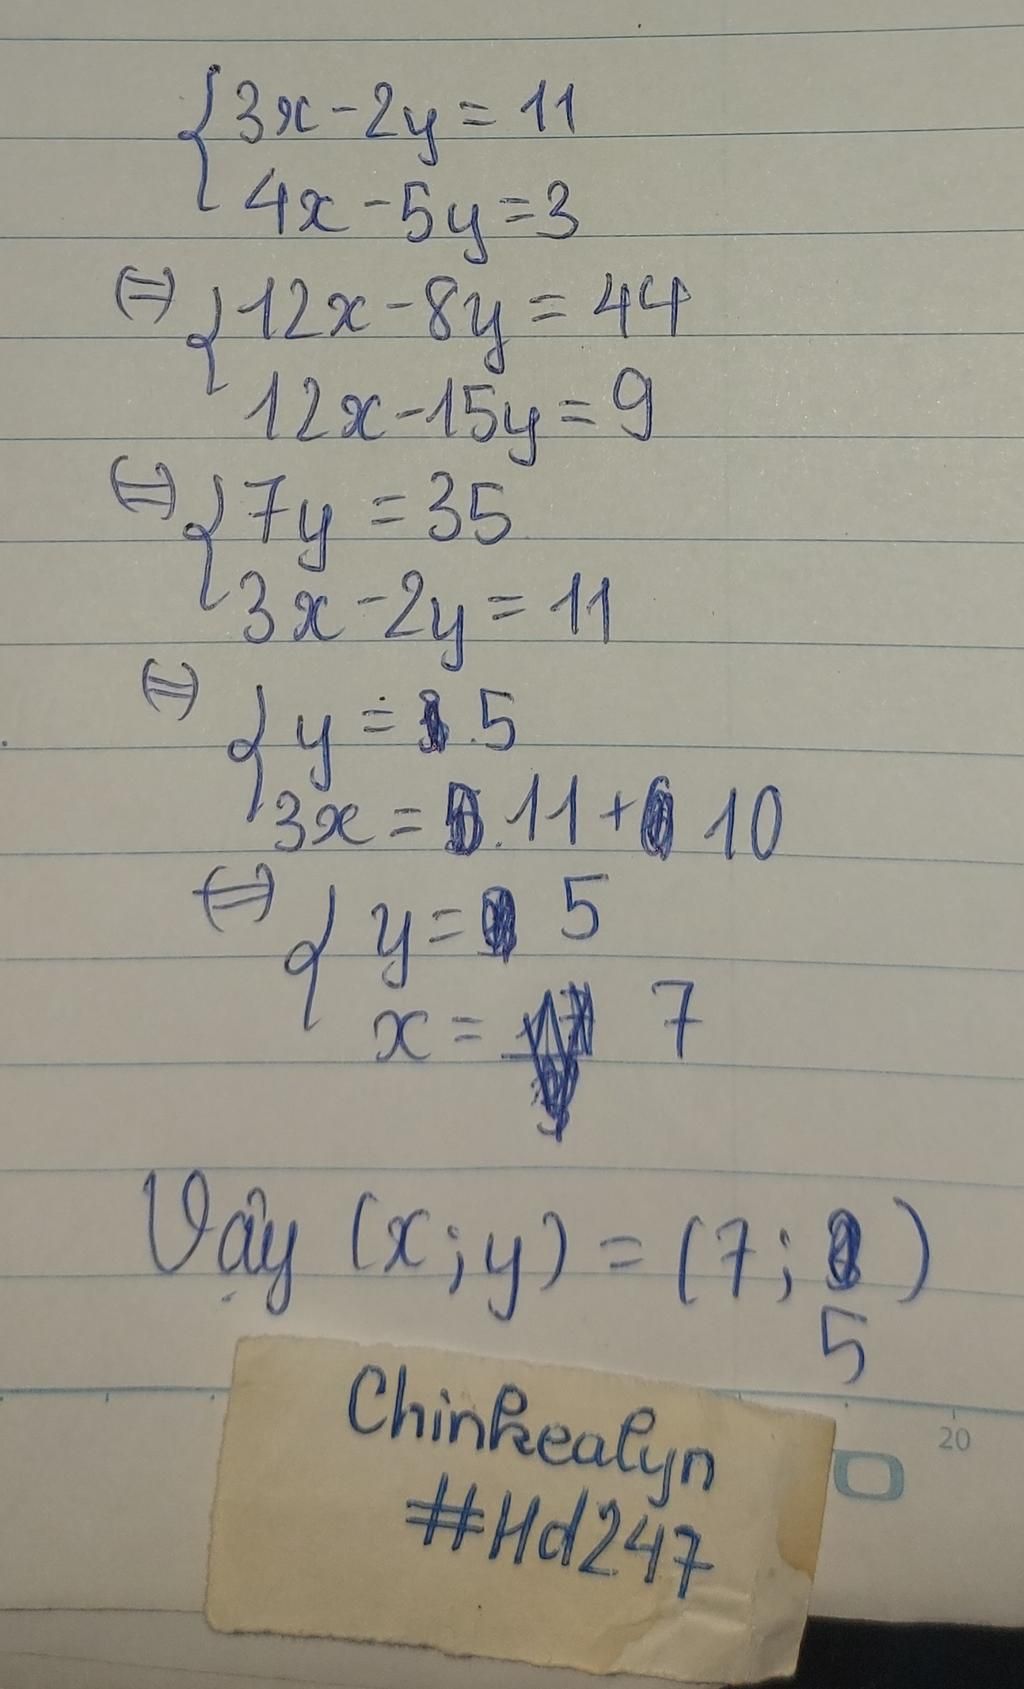 {3x - 2y = 11
4x - 5y = 3
(=) {12x - 8y = 44
12x - 15y = 9
(=) {7y = 35
3x - 2y = 11
(=) {y = 5
3x = 11 + 10
(=) {y = 5
x = 7
Vậy (x; y) = (7; )
5
Chinkealyn
#Hd247
20